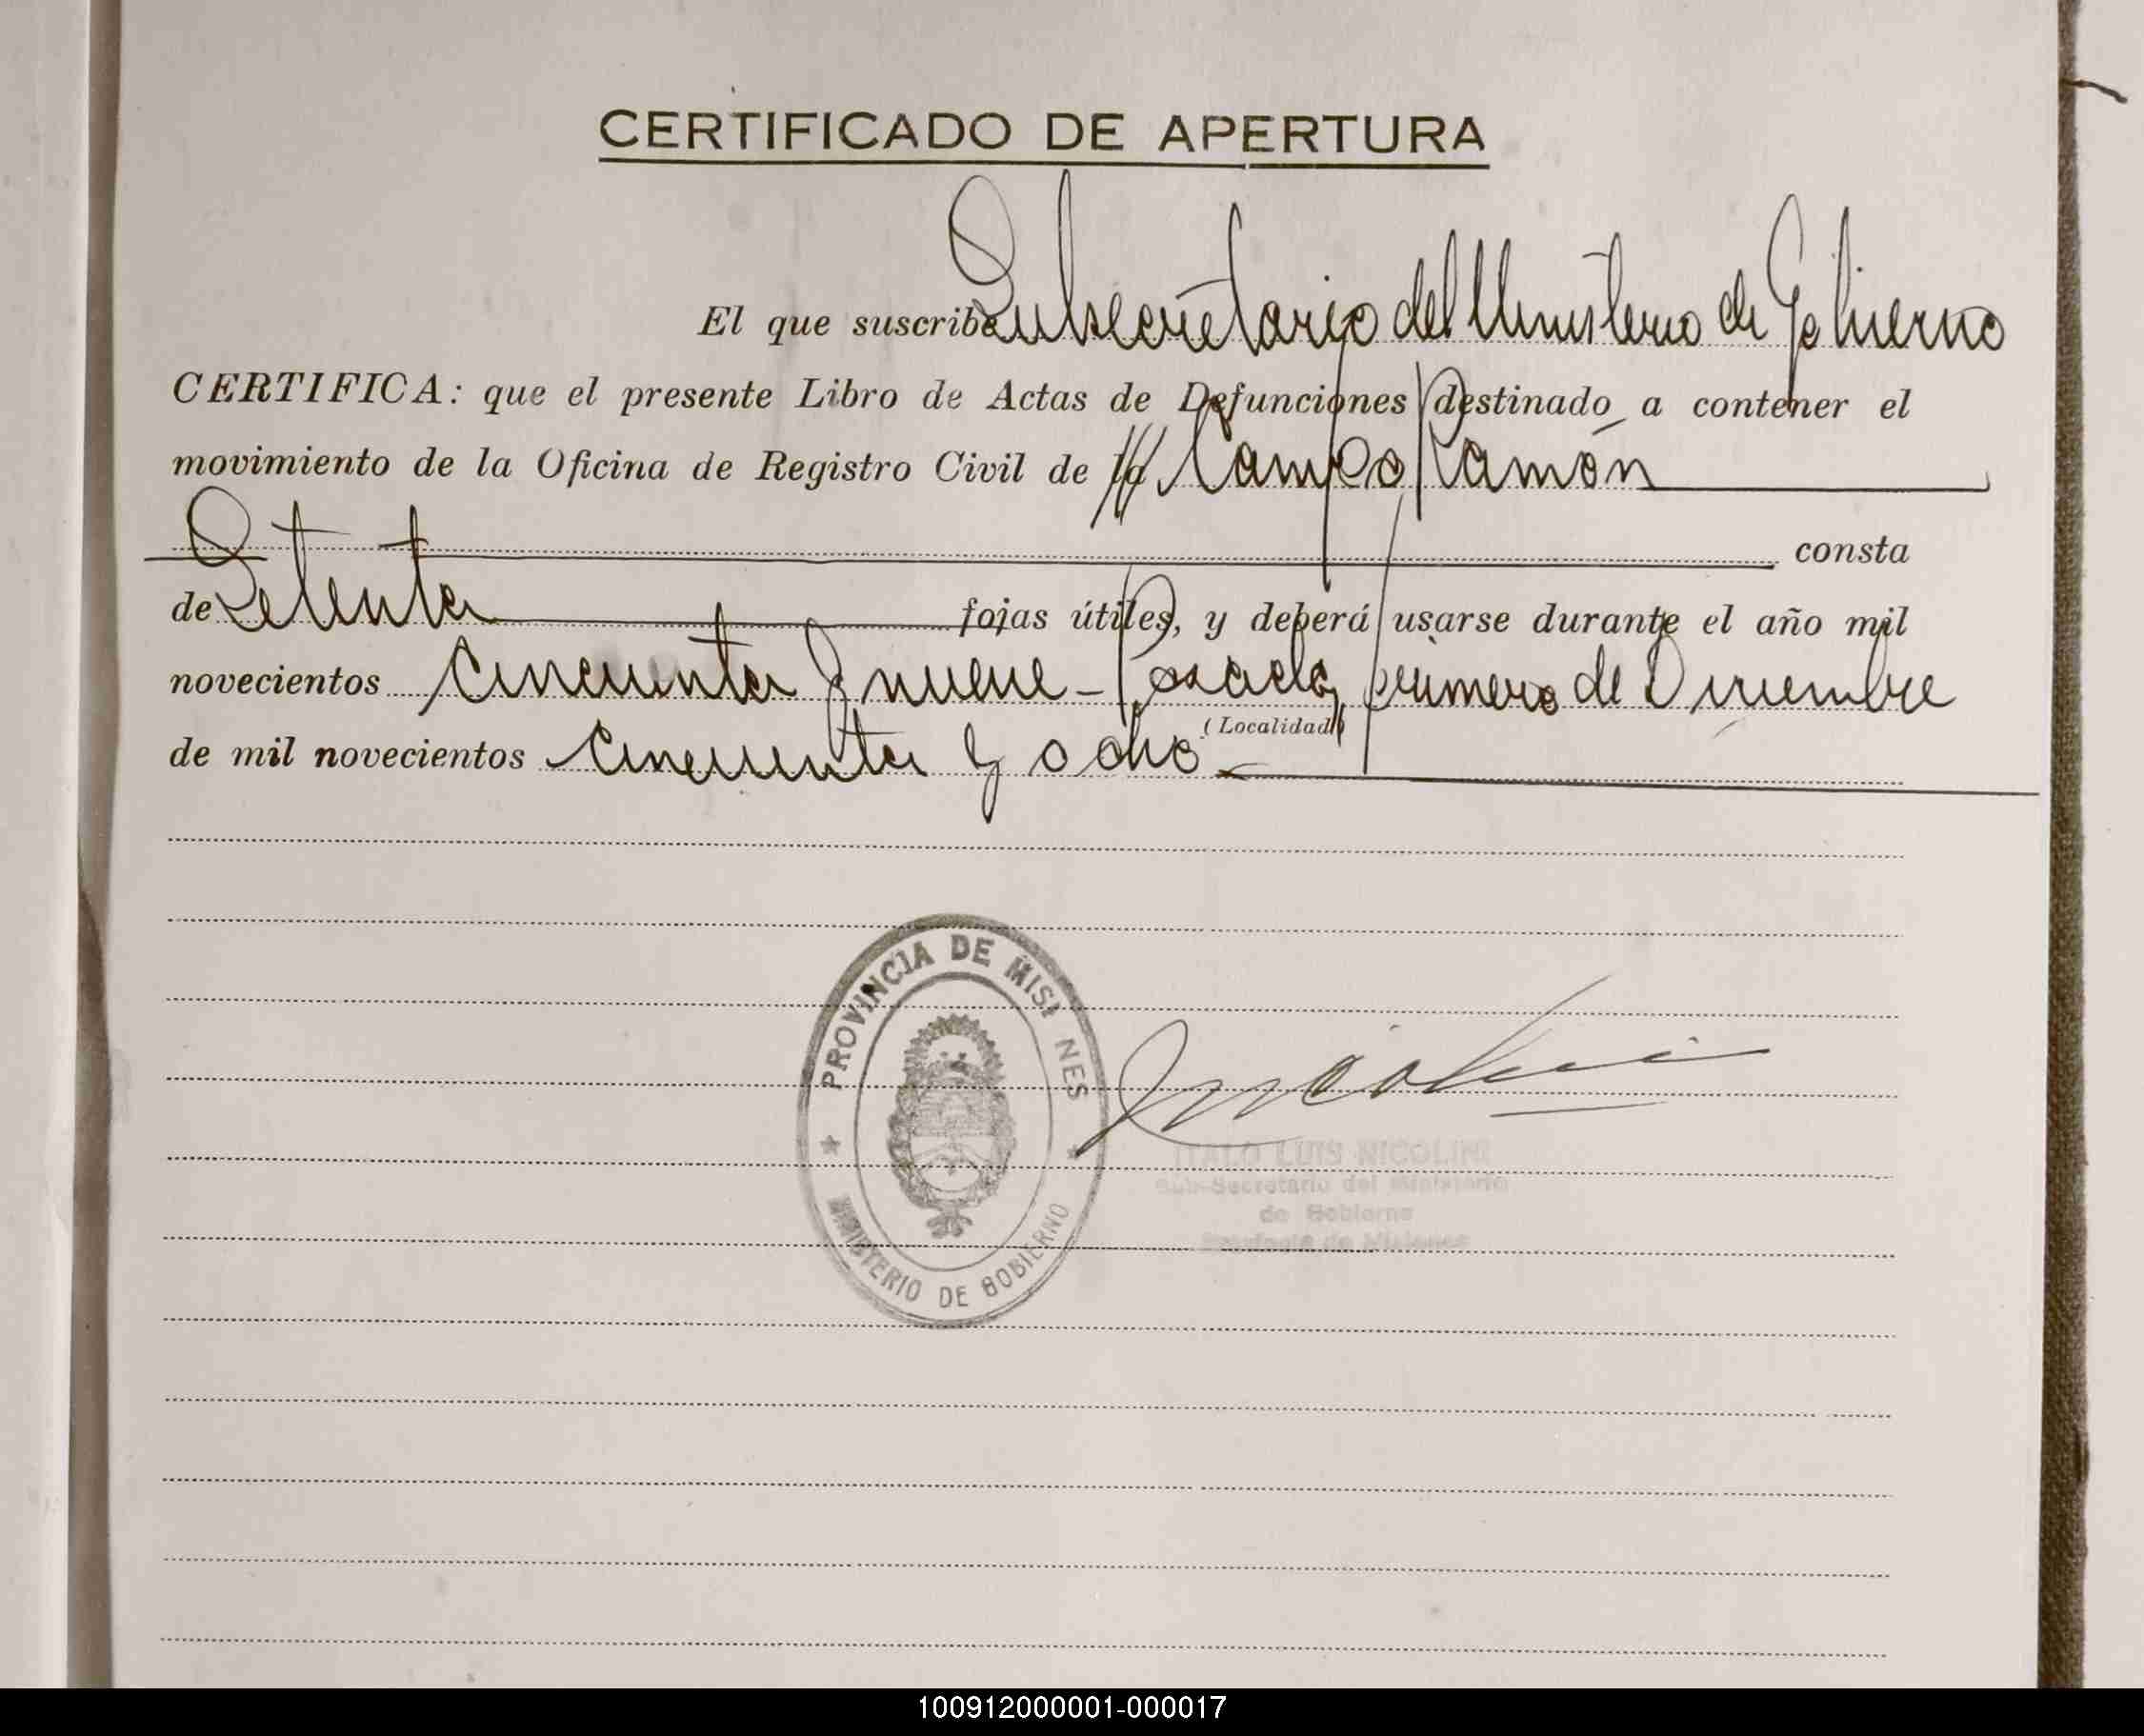 CERTIFICADO DE APERTURA
El que suscribe Subsecretario del Ministerio de Gobierno
CERTIFICA: que el presente Libro de Actas de Defunciones destinado a contener el
movimiento de la Oficina de Registro Civil de la Campo Ramón
consta
de Setenta fojas útiles, y deberá usarse durante el año mil
novecientos Cincuenta y nueve - Posadas, primero de Diciembre
(Localidad)
de mil novecientos Cincuenta y ocho.-
PROVINCIA DE MISI NES
MINISTERIO DE GOBIERNO
ITALO LUIS NICOLINI
Sub-Secretario del Ministerio
de Gobierno
Provincia de Misiones
100912000001-000017